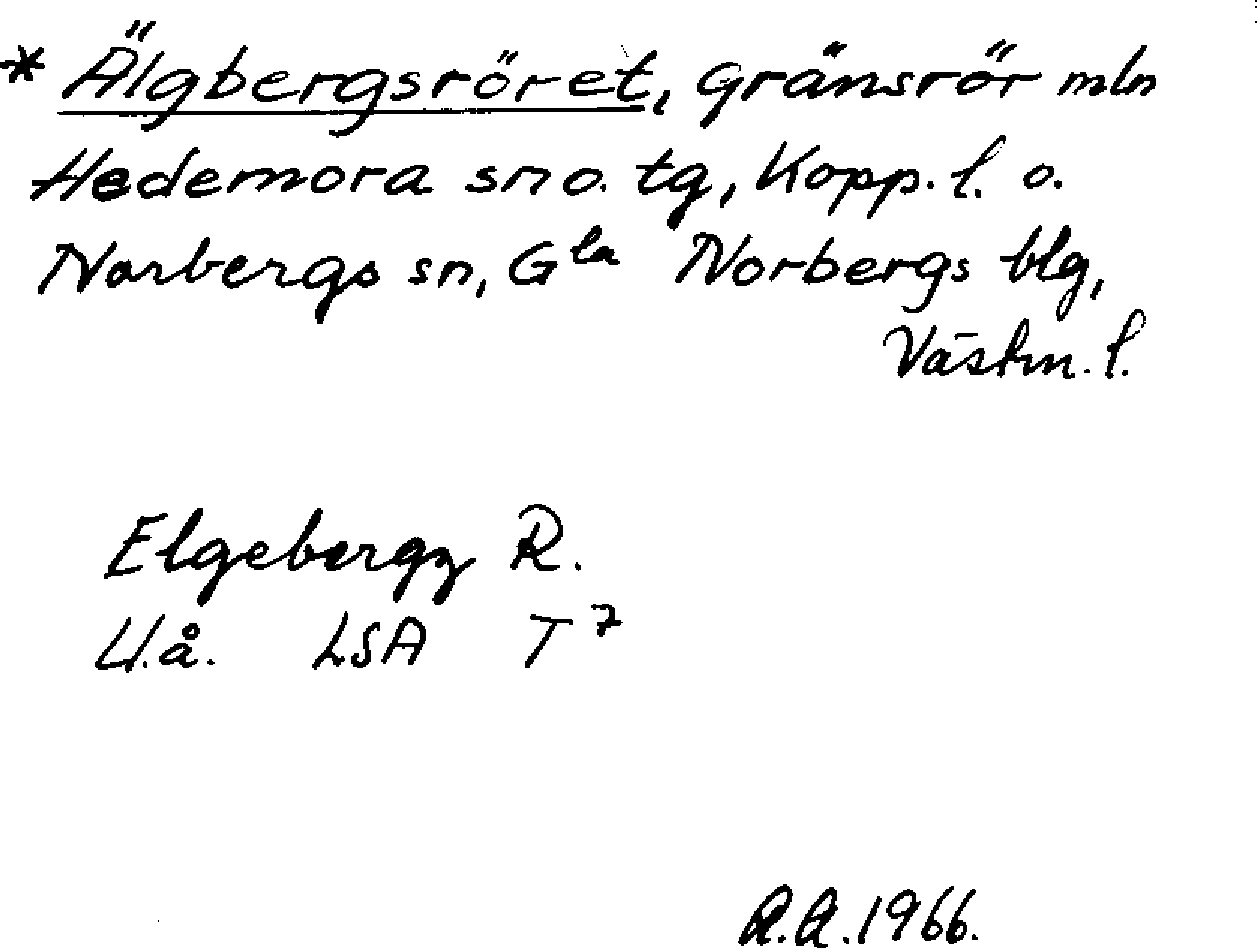 * Älgbergsröret, gränsrör mln
Hedemora sn o. tg, Kopp. l. o.
Norbergs sn, Gla Norbergs blg,
Västm. l.
Elgebergz R.
U.å. LSA T 7
R.A. 1966.